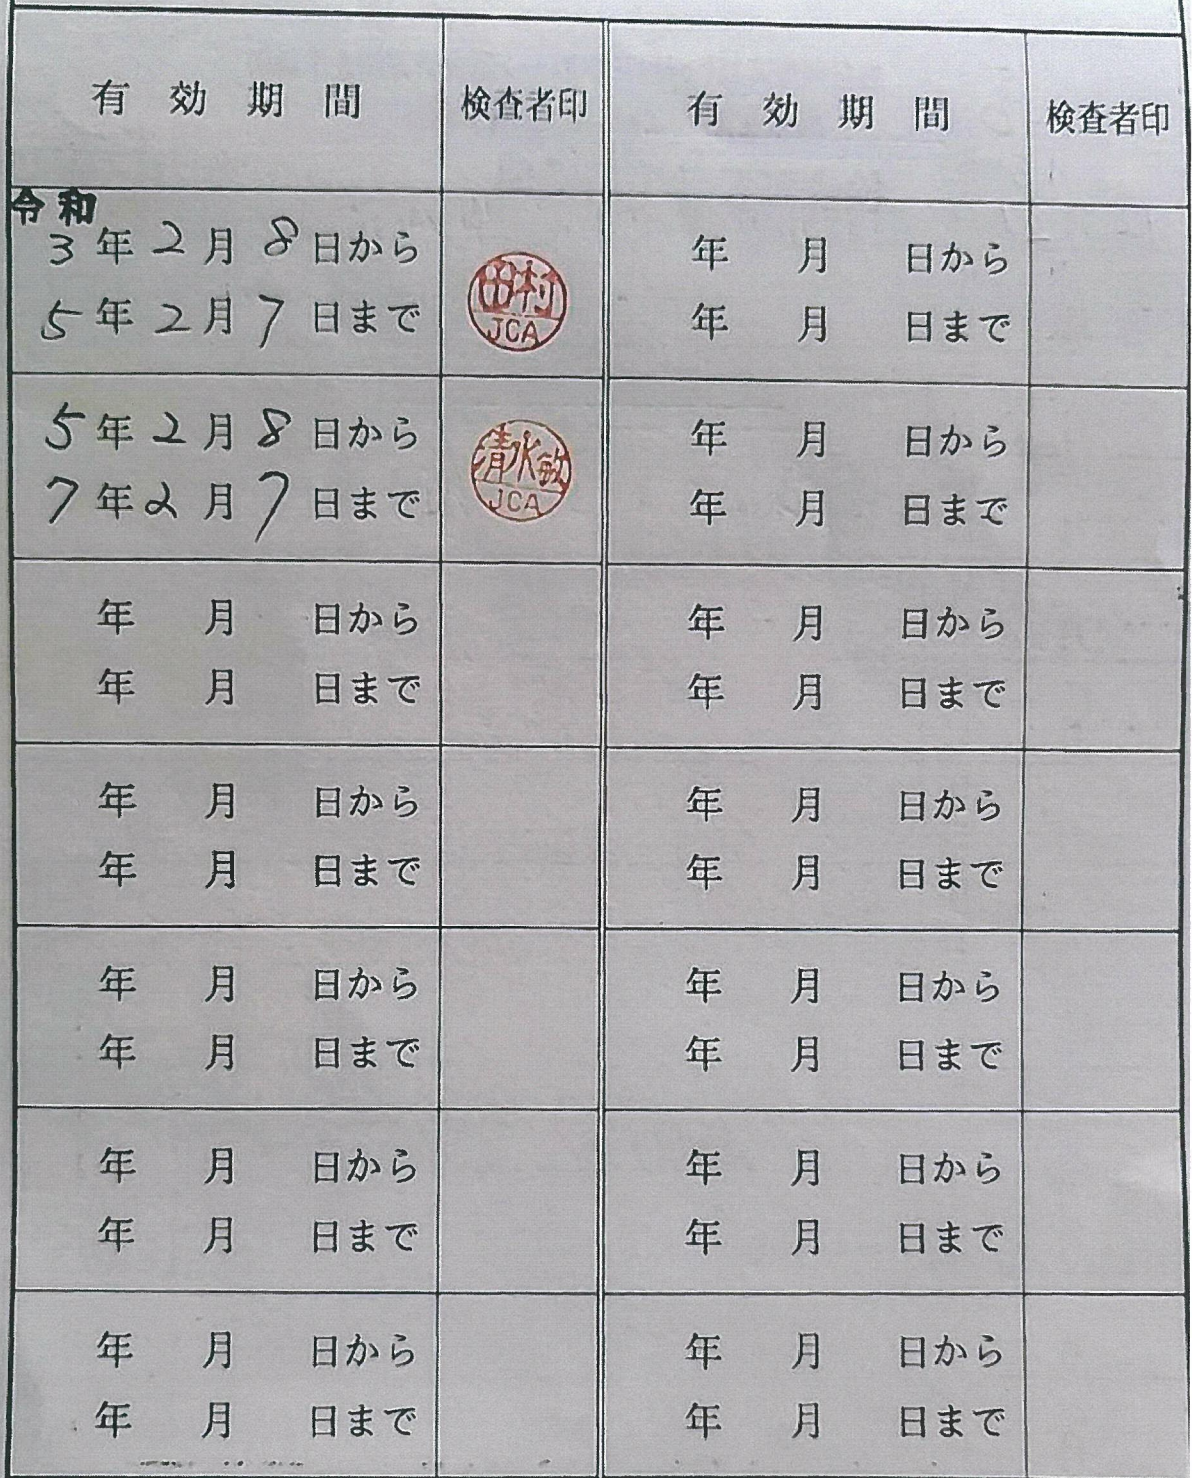 有効期間 検査者印 有効期間 検査者印
令和
3年2月8日から
5年2月7日まで
田村
JCA
年 月 日から
年 月 日まで
5年2月8日から
7年2月7日まで
清水敏
JCA
年 月 日から
年 月 日まで
年 月 日から
年 月 日まで
年 月 日から
年 月 日まで
年 月 日から
年 月 日まで
年 月 日から
年 月 日まで
年 月 日から
年 月 日まで
年 月 日から
年 月 日まで
年 月 日から
年 月 日まで
年 月 日から
年 月 日まで
年 月 日から
年 月 日まで
年 月 日から
年 月 日まで